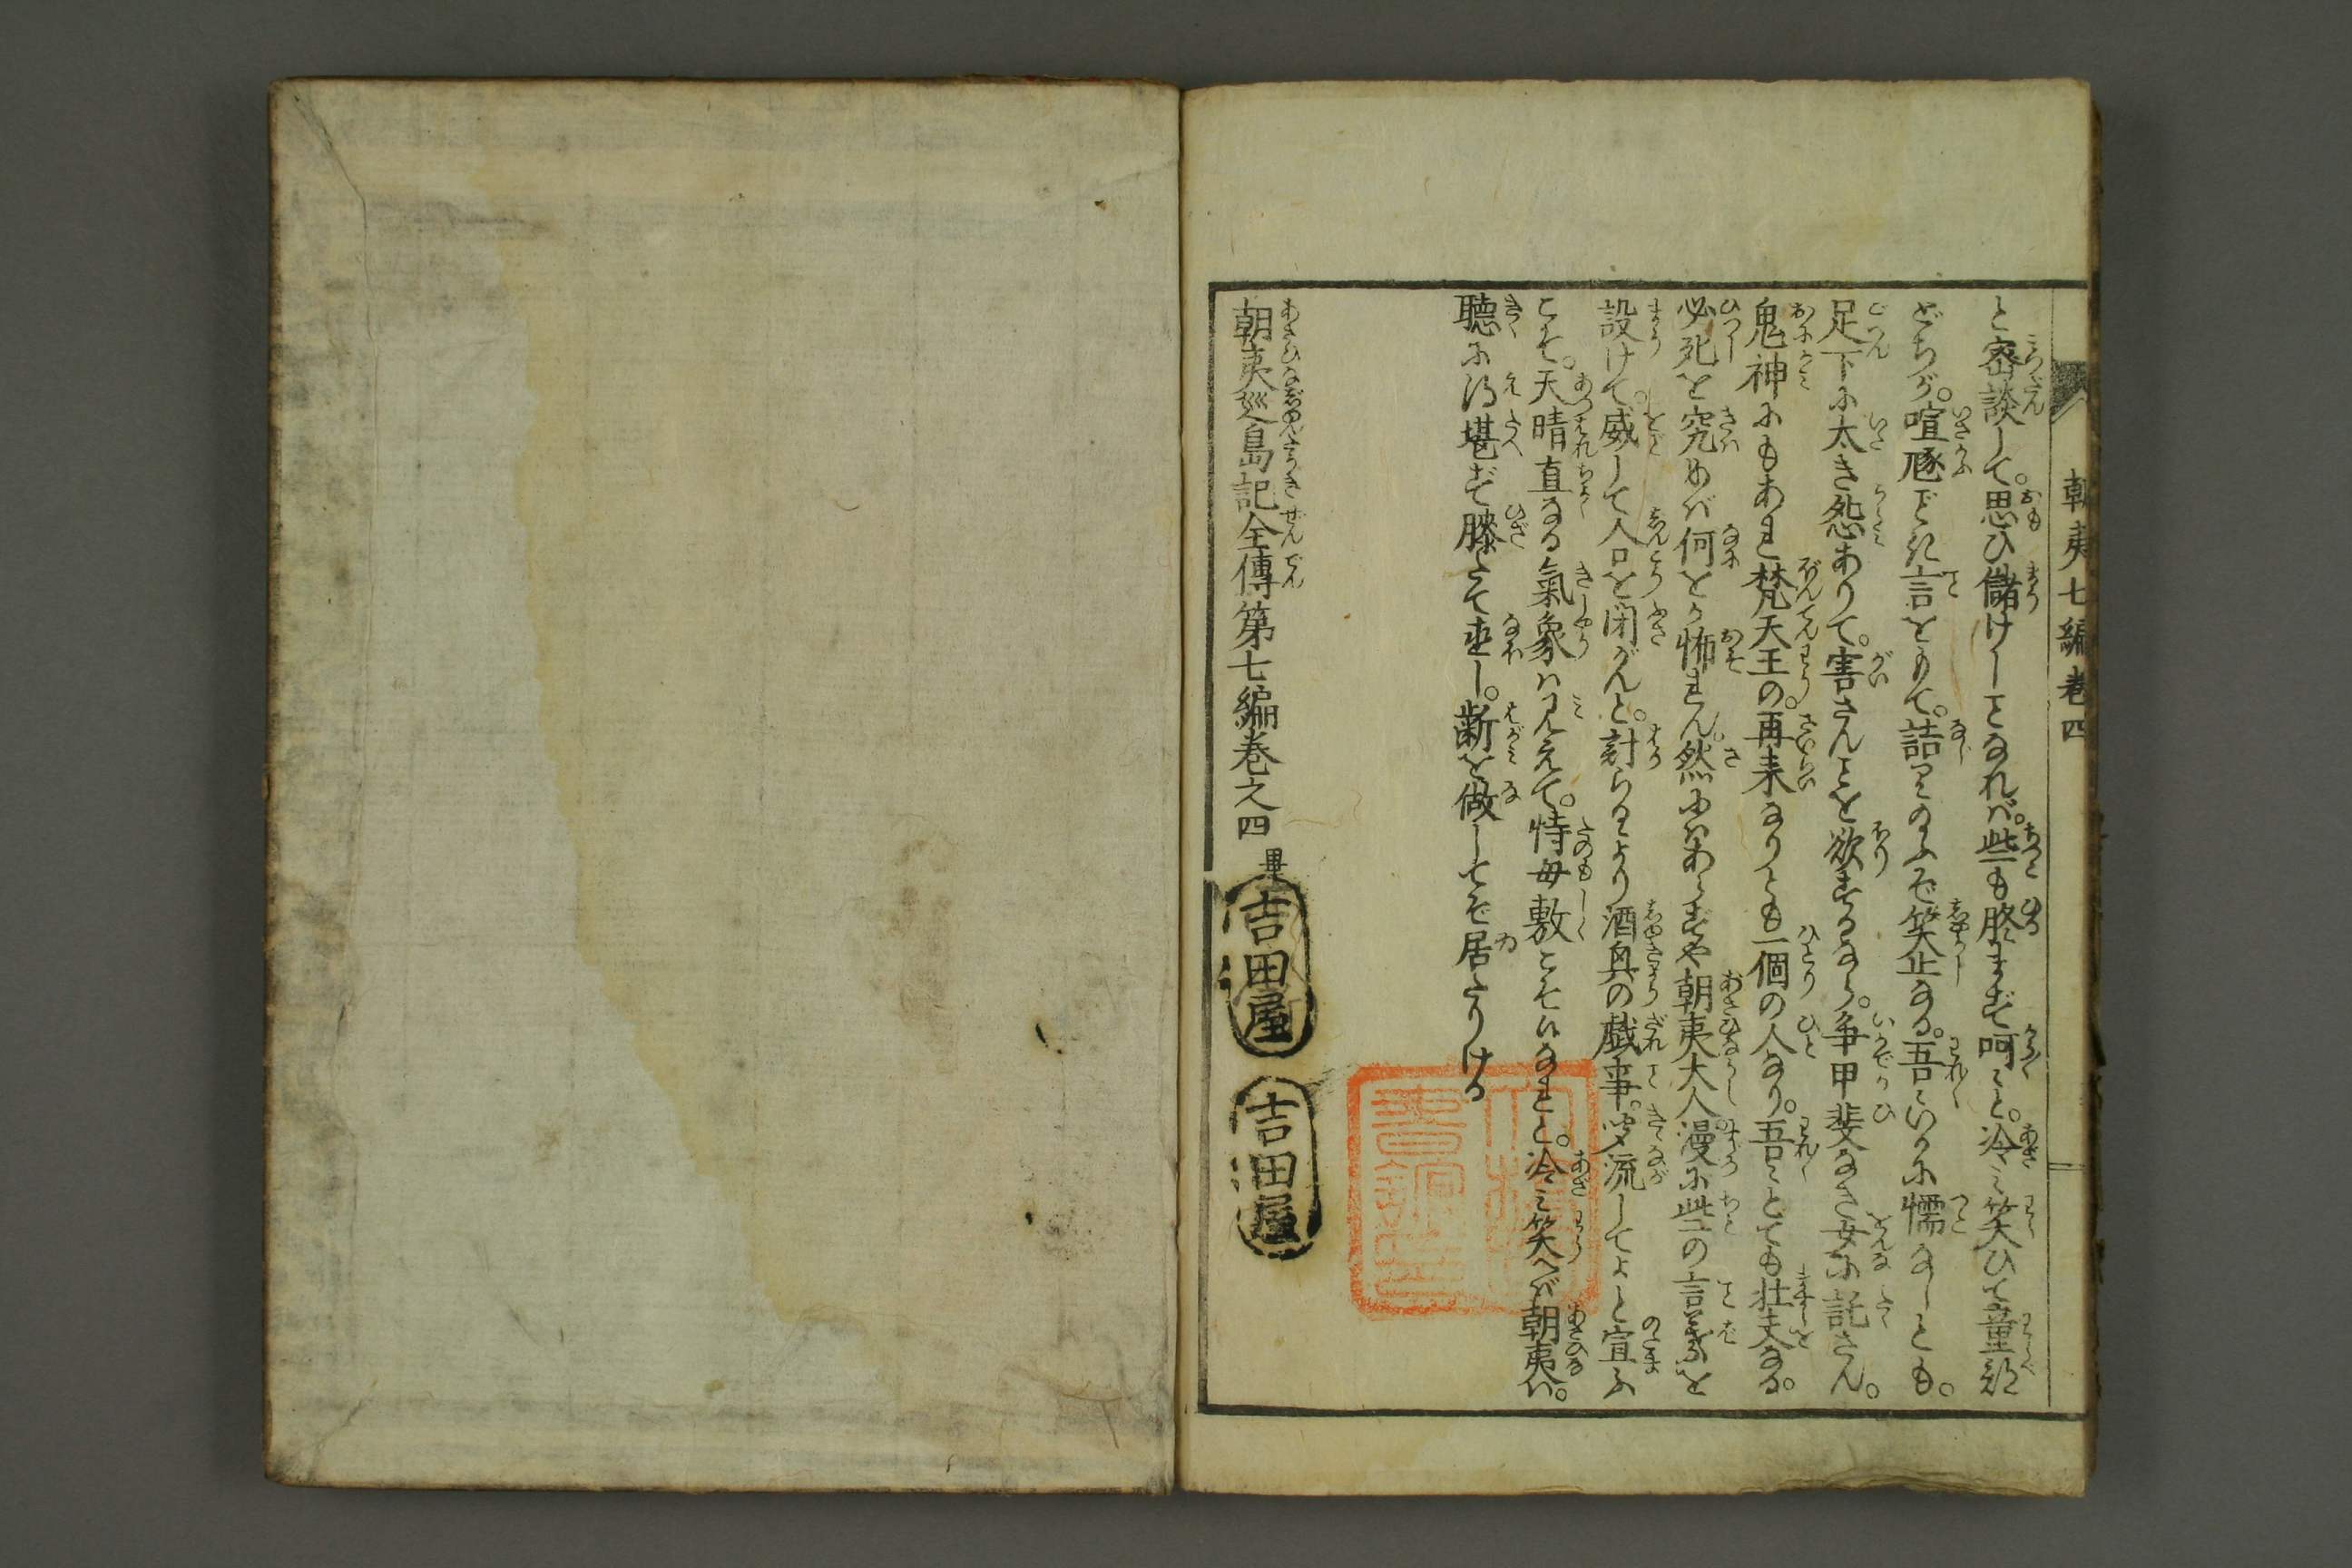 朝夷七編巻四
と密談して。思ひ儲けしことなれバ。些も騒まず呵々と。冷み笑ひて童部
どちが。喧豗どに言をもて。詰るのふぞ笑止なる。吾々いかに懦なしとも。
足下に太き怨ありて。害さんことを欲するなら。争甲斐なき女に託さん。
鬼神にもあれ梵天王の。再来なりとも一個の人なり。吾々とても壮夫なる。
必死を究めバ何をか怖れん。然にハあらずや朝夷大人。漫に些の言葉を
設けて。威して人口を閉がんと。計らるより酒興の戯事。聞流してよと宣ふ
こそ。天晴直なる氣象ハ見えて。恃母敷こそ候なれと。冷み笑へバ朝夷ハ。
聴に得堪ず膝立て直し。齗を做してぞ居たりける
朝夷巡島記全傳第七編巻之四 畢
吉田屋
吉田屋